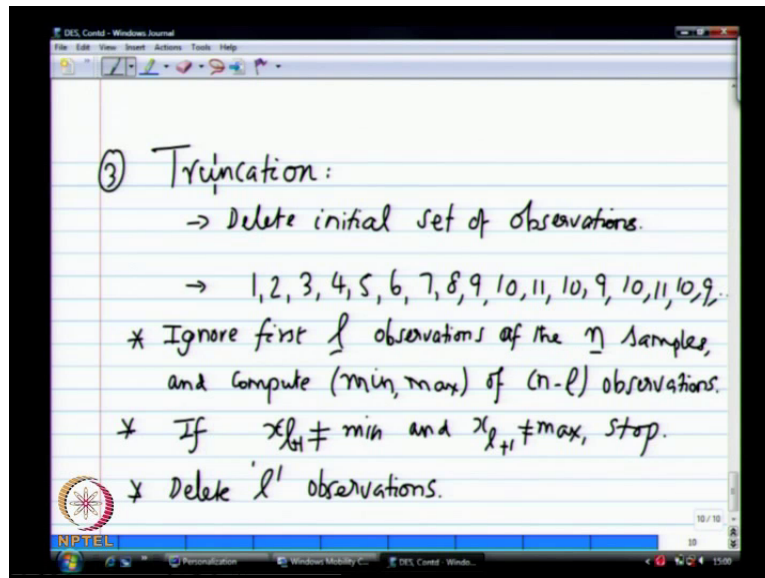 DES, Contd - Windows Journal
File Edit View Insert Actions Tools Help
③ Truncation:
→ Delete initial set of observations.
→ 1, 2, 3, 4, 5, 6, 7, 8, 9, 10, 11, 10, 9, 10, 11, 10, 9, ..
* Ignore first l observations of the n samples,
and compute (min, max) of (n-l) observations.
* If xl+1 ≠ min and xl+1 ≠ max, stop.
* Delete 'l' observations.
10 / 10
10
NPTEL
Personalization Windows Mobility C... DES, Contd - Windo... 15:00